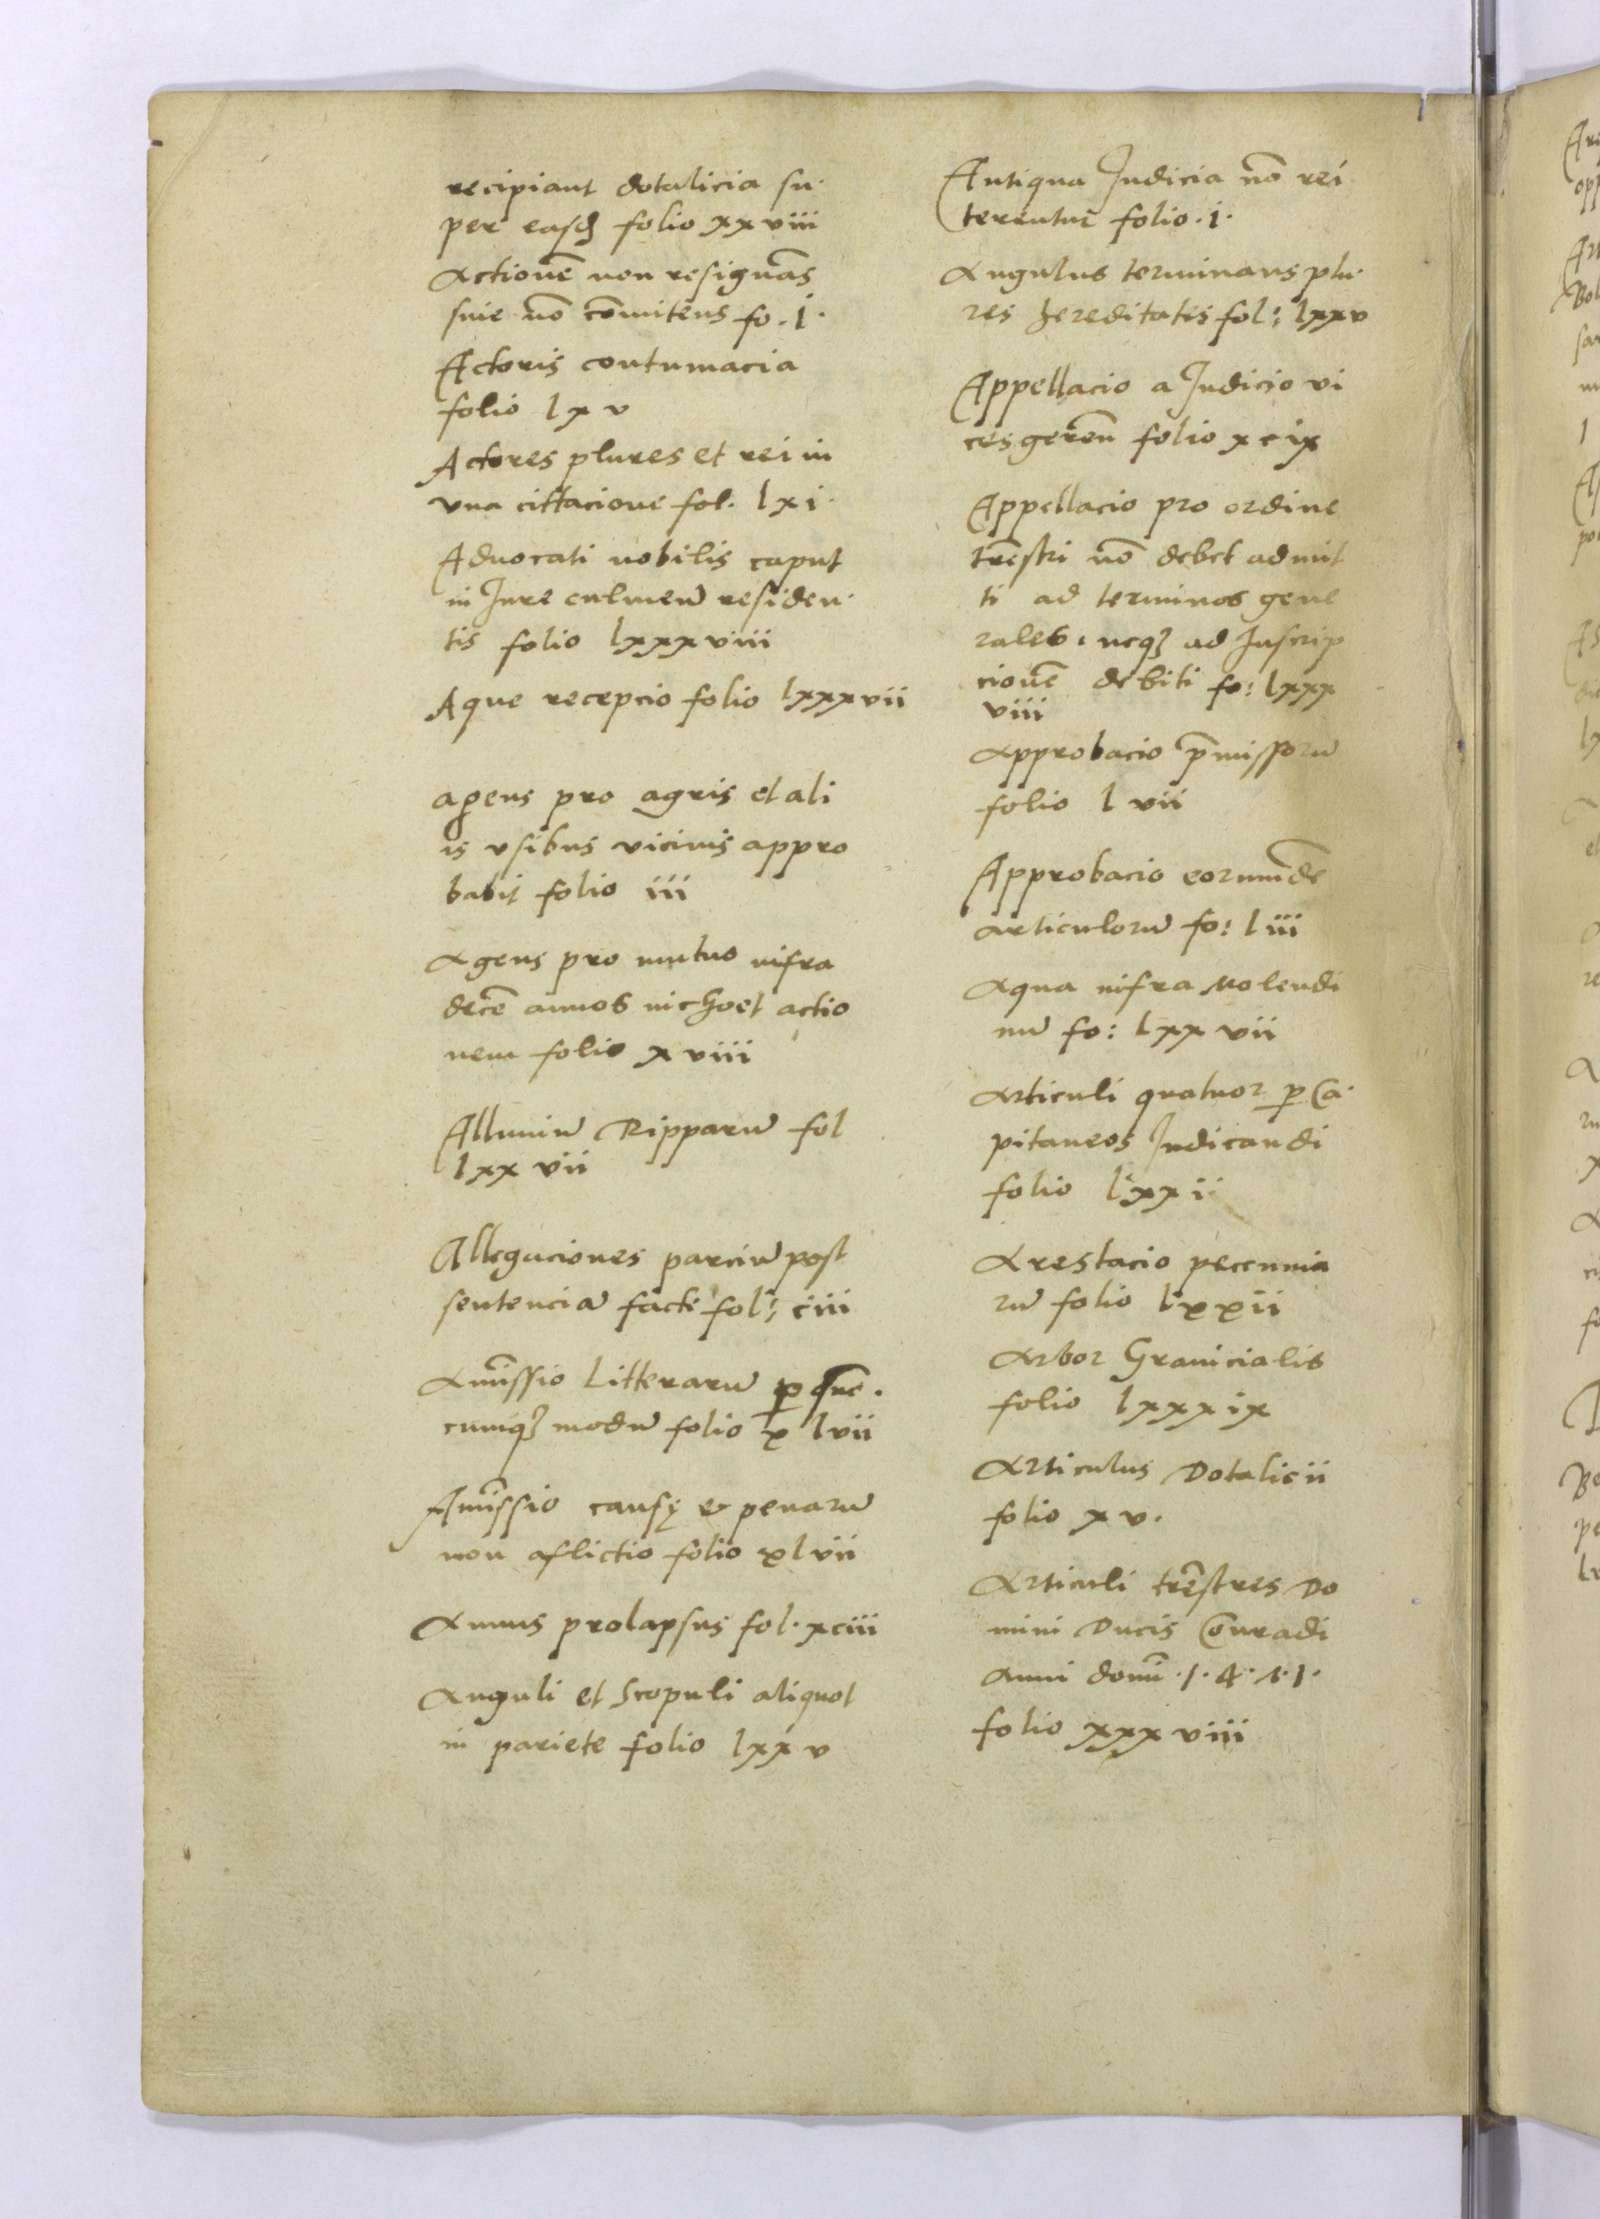 recipiant dotalicia su·
per easdẽ folio xx viii
Actionẽ non resignãs
sine nõ cõmitens fo. l·
Actoris contumacia
folio lxv
Actores plures et rei in
vna cittacione fol. lxi·
Aduocati nobilis caput
in Jure culmeũ residen·
tis folio lxxxviii
Aque recepcio folio lxxxvii
agens pro agris et ali
is vsibus vicinis appro
babit folio iii
Agens pro mutuo infra
decẽ annos inchoet actio
nem folio xviii
Alluuiũ Ripparũ fol
lxx vii
Allegaciones parciũ post
sentenciã facti fol: ciii
Amissio Litterarũ ꝑ quẽ·
cumqꝫ modũ folio xlvii
Amissio causę & penarũ
non aflictio folio xlvii
Annus prolapsus fol· xciii
Anguli et Scopuli aliquot
in pariete folio lxxv
Antiqua Judicia nõ rei
terentur folio·l·
Angulus terminans plu·
res hereditatis fol: lxxv
Appellacio a Judicio vi
cesgerẽn folio xcix
Appellacio pro ordine
trẽstri nõ debet admit
ti ad terminos gene
rales· neqꝫ ad Inscrip
cionẽ debiti fo: lxxx
viii
Approbacio p̃missorũ
folio l vii
Approbacio eorumdẽ
articulorũ fo: l iii
Aqua infra Molendi
nũ fo: lxx vii
Articuli quatuor ꝑ Ca·
pitaneos Judicandi
folio lxxii
Arestacio pecunia
rũ folio lxxii
Arbor Granicialis
folio lxxxix
Articulus Dotalicii
folio xv·
Articuli trẽstres Do
mini Ducis Conradi
anni domĩ ·1·4·
folio xxxviii